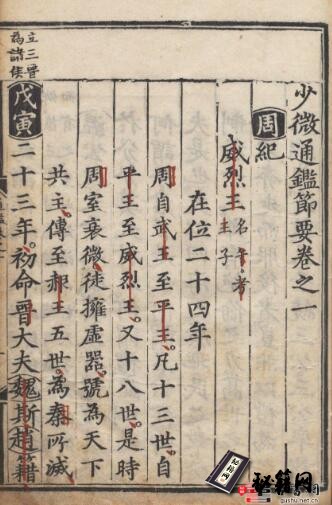 少微通鑑節要卷之一
周紀
威烈王名午考王子
在位二十四年
周自武王至平王凡十三世自
平王至威烈王又十八世是時
周室衰微徒擁虛器號為天下
共主傳至赧王五世為秦所滅
戊寅二十三年初命晉大夫魏斯趙籍
立三晉
為諸侯
秘籍网
gushu.net.cn